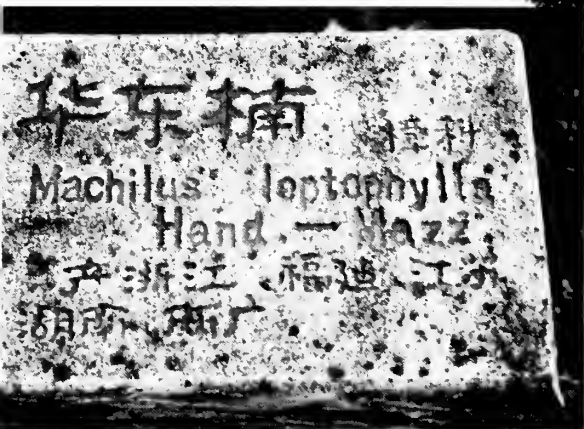 华东楠 樟科
Machilus leptophylla
Hand — Mazz.
产浙江、福建、江苏
湖南、两广